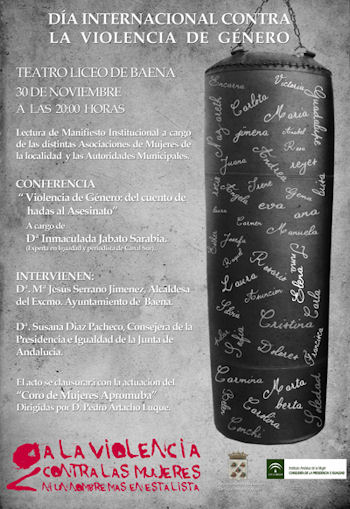 DÍA INTERNACIONAL CONTRA
LA VIOLENCIA DE GÉNERO
TEATRO LICEO DE BAENA
30 DE NOVIEMBRE
A LAS 20:00 HORAS
Lectura de Manifiesto Institucional a cargo
de las distintas Asociaciones de Mujeres de
la localidad y las Autoridades Municipales.
CONFERENCIA
“ Violencia de Género: del cuento de
hadas al Asesinato”
A cargo de
Dª Inmaculada Jabato Sarabia.
(Experta en Igualdad y periodista de Canal Sur).
INTERVIENEN:
Dª. Mª Jesús Serrano Jimenez, Alcaldesa
del Excmo. Ayuntamiento de Baena.
Dª. Susana Diaz Pacheco, Consejera de la
Presidencia e Igualdad de la Junta de
Andalucía.
El acto se clausurará con la actuación del
“Coro de Mujeres Apromuba”
Dirigidas por D. Pedro Artacho Luque.
Encarna
Victoria
Guadalupe
Nazareth
Carlota
María
jimena
Anabel
Rosa
Juana
Andrea
reyes
Angela
Irene
Gema
luisa
laura
eva
ana
Carmen
Manuela
Ester
Josefa
Inma
Elena
Laura
Rosario
Asuncion
Carla
Selena
Cristina
Sofía
Dolores
Francisca
Carmina
Marta
Soledad
berta
Carolina
Conchi
NO A LA VIOLENCIA
CONTRA LAS MUJERES
NI UN NOMBRE MAS EN ESTA LISTA
Instituto Andaluz de la Mujer
CONSEJERÍA DE LA PRESIDENCIA E IGUALDAD